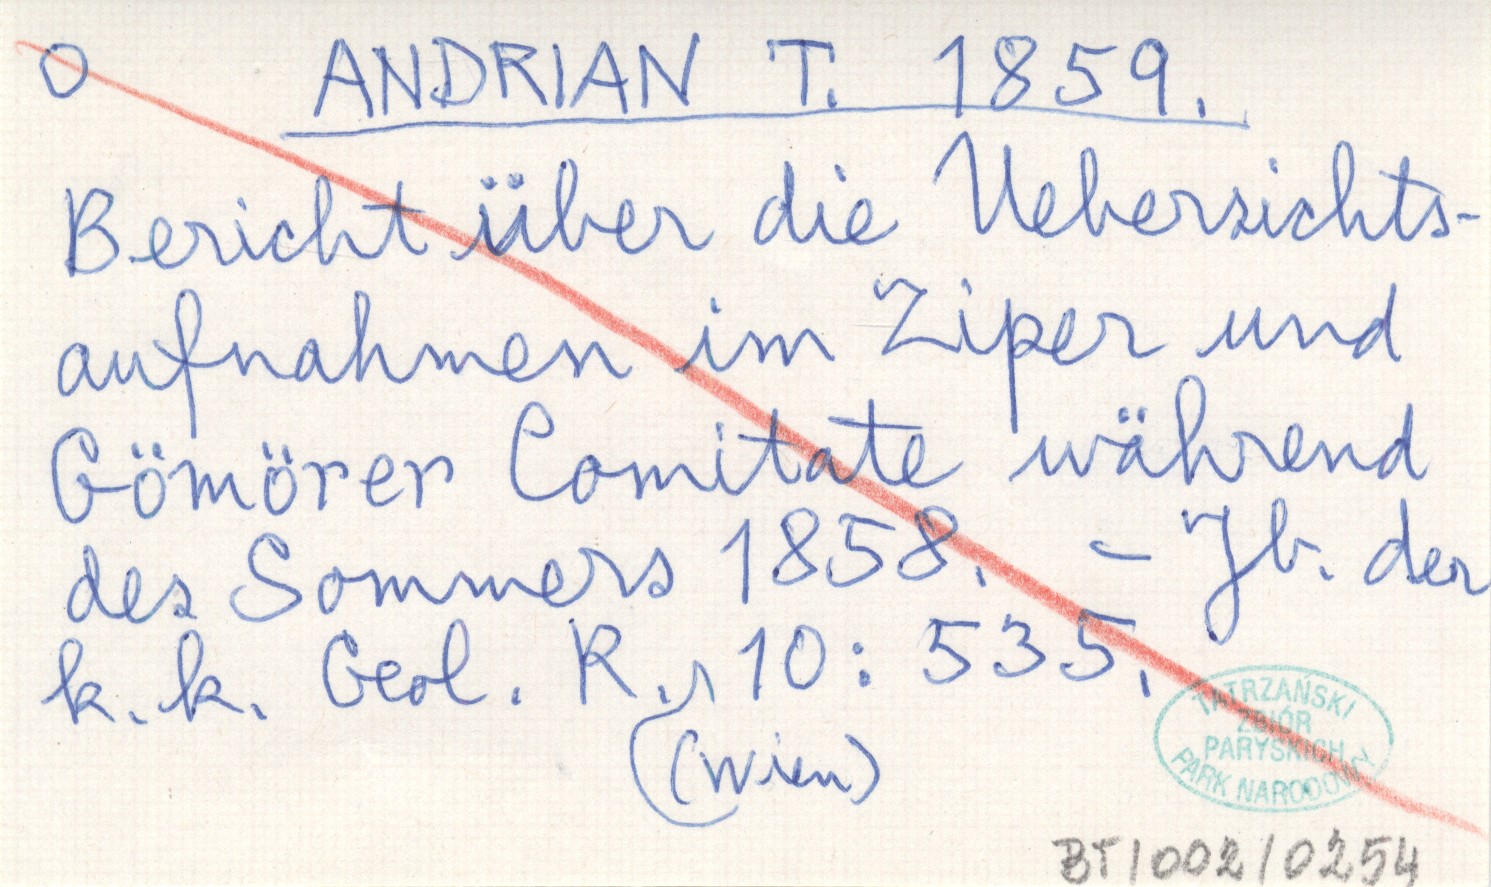 O ANDRIAN T. 1859.
Bericht über die Uebersichts-
aufnahmen im Ziper und
Gömörer Comitate während
des Sommers 1858. - Jb. der
k. k. Geol. R., 10: 535.
(Wien)
TATRZAŃSKI
ZBIÓR
PARYSKICH
PARK NARODOWY
BT/002/0254